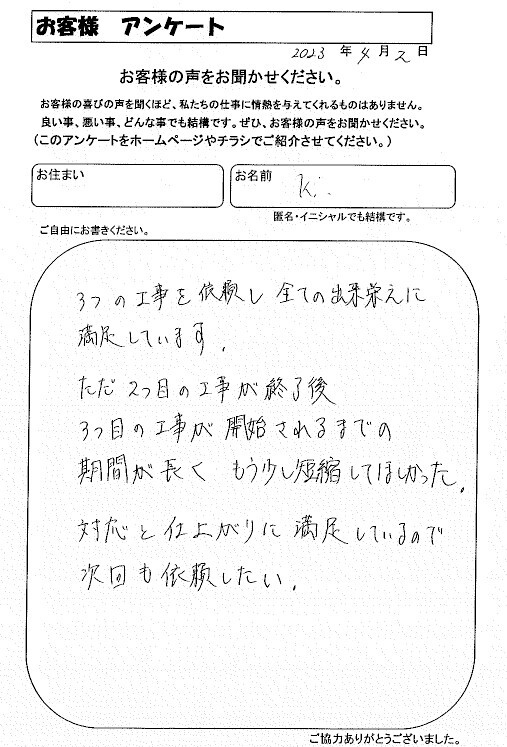 お客様 アンケート
2023 年 4 月 2 日
お客様の声をお聞かせください。
お客様の喜びの声を聞くほど、私たちの仕事に情熱を与えてくれるものはありません。
良い事、悪い事、どんな事でも結構です。ぜひ、お客様の声をお聞かせください。
(このアンケートをホームページやチラシでご紹介させてください。)
お住まい
お名前 K.
匿名・イニシャルでも結構です。
ご自由にお書きください。
3つの工事を依頼し 全ての出来栄えに
満足しています.
ただ 2つ目の工事が終了後
3つ目の工事が開始されるまでの
期間が長く もう少し短縮してほしかった.
対応と仕上がりに満足しているので
次回も依頼したい.
ご協力ありがとうございました。